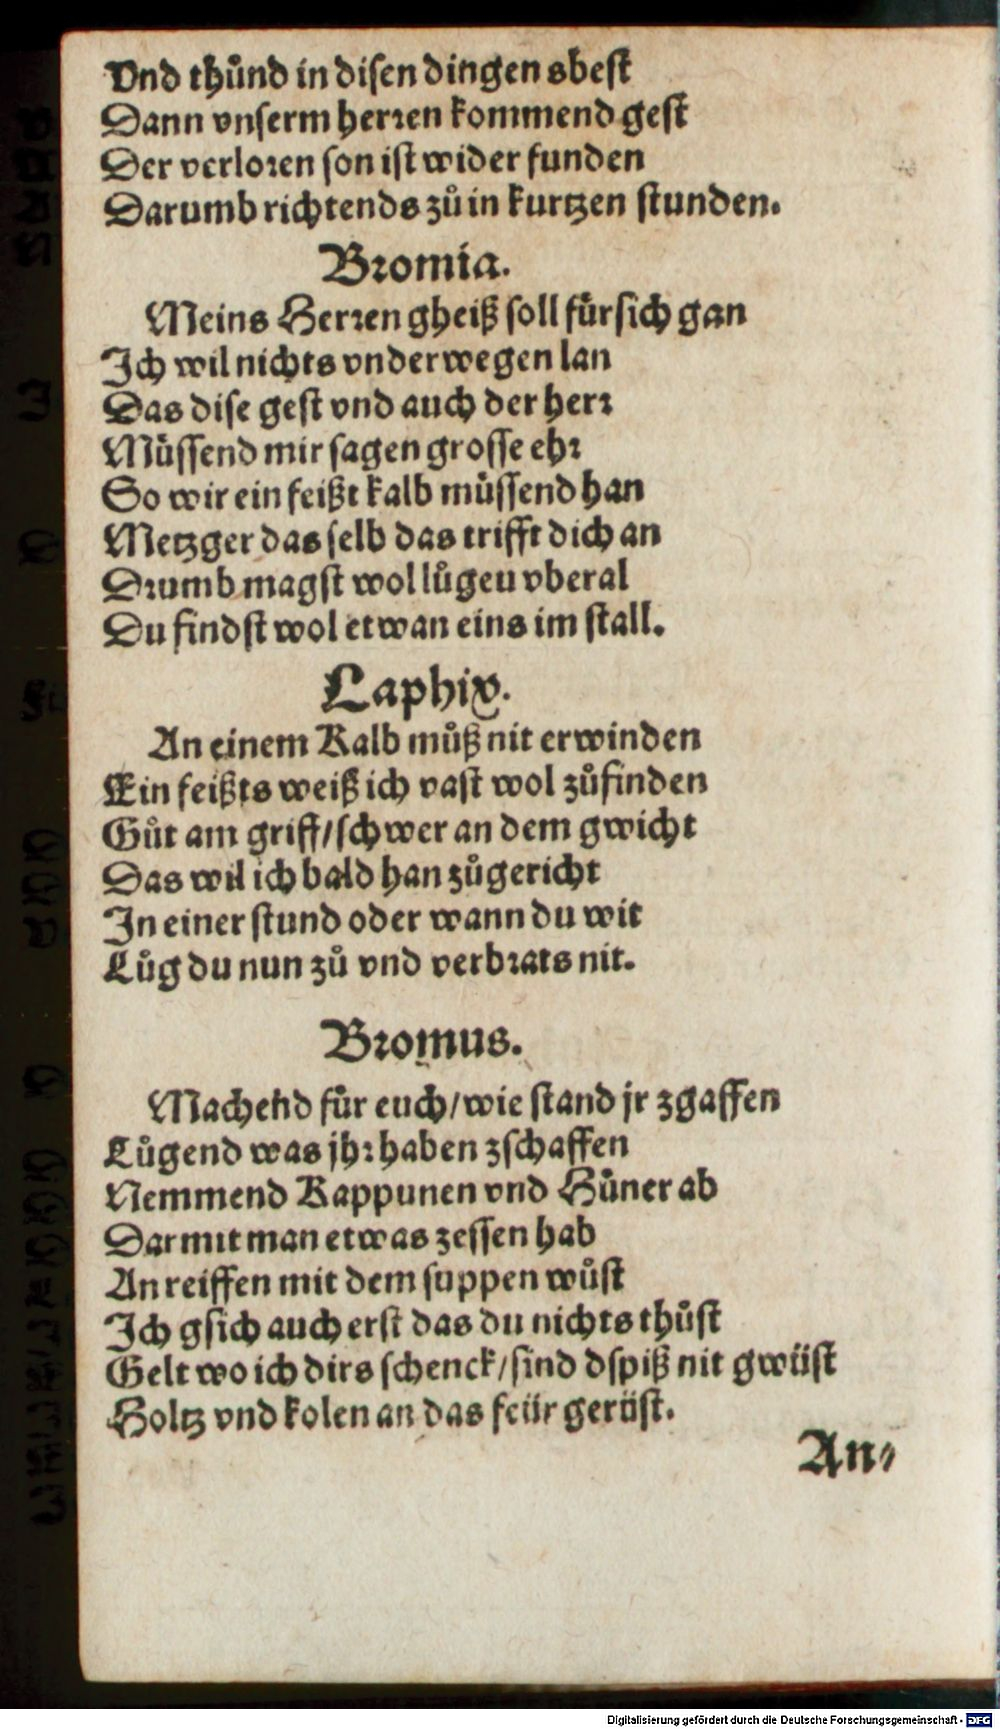 Vnd thůnd in disen dingen sbest
Dann vnserm herren kommend gest
Der verloren son ist wider funden
Darumb richtends zů in kurtzen stunden.
Bromia.
Meins Herren gheiß soll fürsich gan
Ich wil nichts vnderwegen lan
Das dise gest vnd auch der herr
Müssend mir sagen grosse ehr
So wir ein feißt kalb müssend han
Metzger das selb das trifft dich an
Drumb magst wol lůgeu vberal
Du findst wol etwan eins im stall.
Laphix.
An einem Kalb můß nit erwinden
Ein feißts weiß ich vast wol zůfinden
Gůt am griff/schwer an dem gwicht
Das wil ich bald han zůgericht
In einer stund oder wann du wit
Lůg du nun zů vnd verbrats nit.
Bromus.
Machend für euch/wie stand jr zgaffen
Lůgend was jhr haben zschaffen
Nemmend Kappunen vnd Hüner ab
Darmit man etwas zessen hab
An reiffen mit dem suppen wůst
Ich gsich auch erst das du nichts thůst
Gelt wo ich dirs schenck/sind dspiß nit gwüst
Holtz vnd kolen an das feür gerüst.
An-
Digitalisierung gefördert durch die Deutsche Forschungsgemeinschaft - DFG